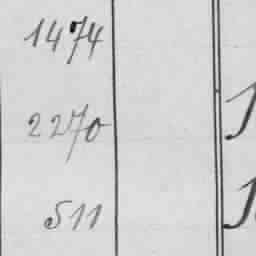 1474
2270
511